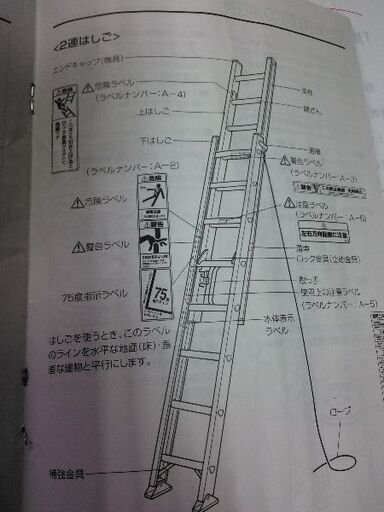 <2連はしご>
エンドキャップ(端具)
危険ラベル
(ラベルナンバー:A-4)
上はしご
下はしご
(ラベルナンバー:A-2)
危険ラベル
警告ラベル
75度指示ラベル
はしごを使うとき、このラベル
のラインを水平な地面(床)・垂
直な建物と平行にします。
補強金具
支柱
踏ざん
滑車
警告ラベル
(ラベルナンバー:A-3)
警告
注意ラベル
(ラベルナンバー:A-6)
左右方向転倒に注意
滑車
ロック金具(止め金具)
取っ手
使用上の注意ラベル
(ラベルナンバー:A-5)
本体表示
ラベル
ロープ
危険
警告
75